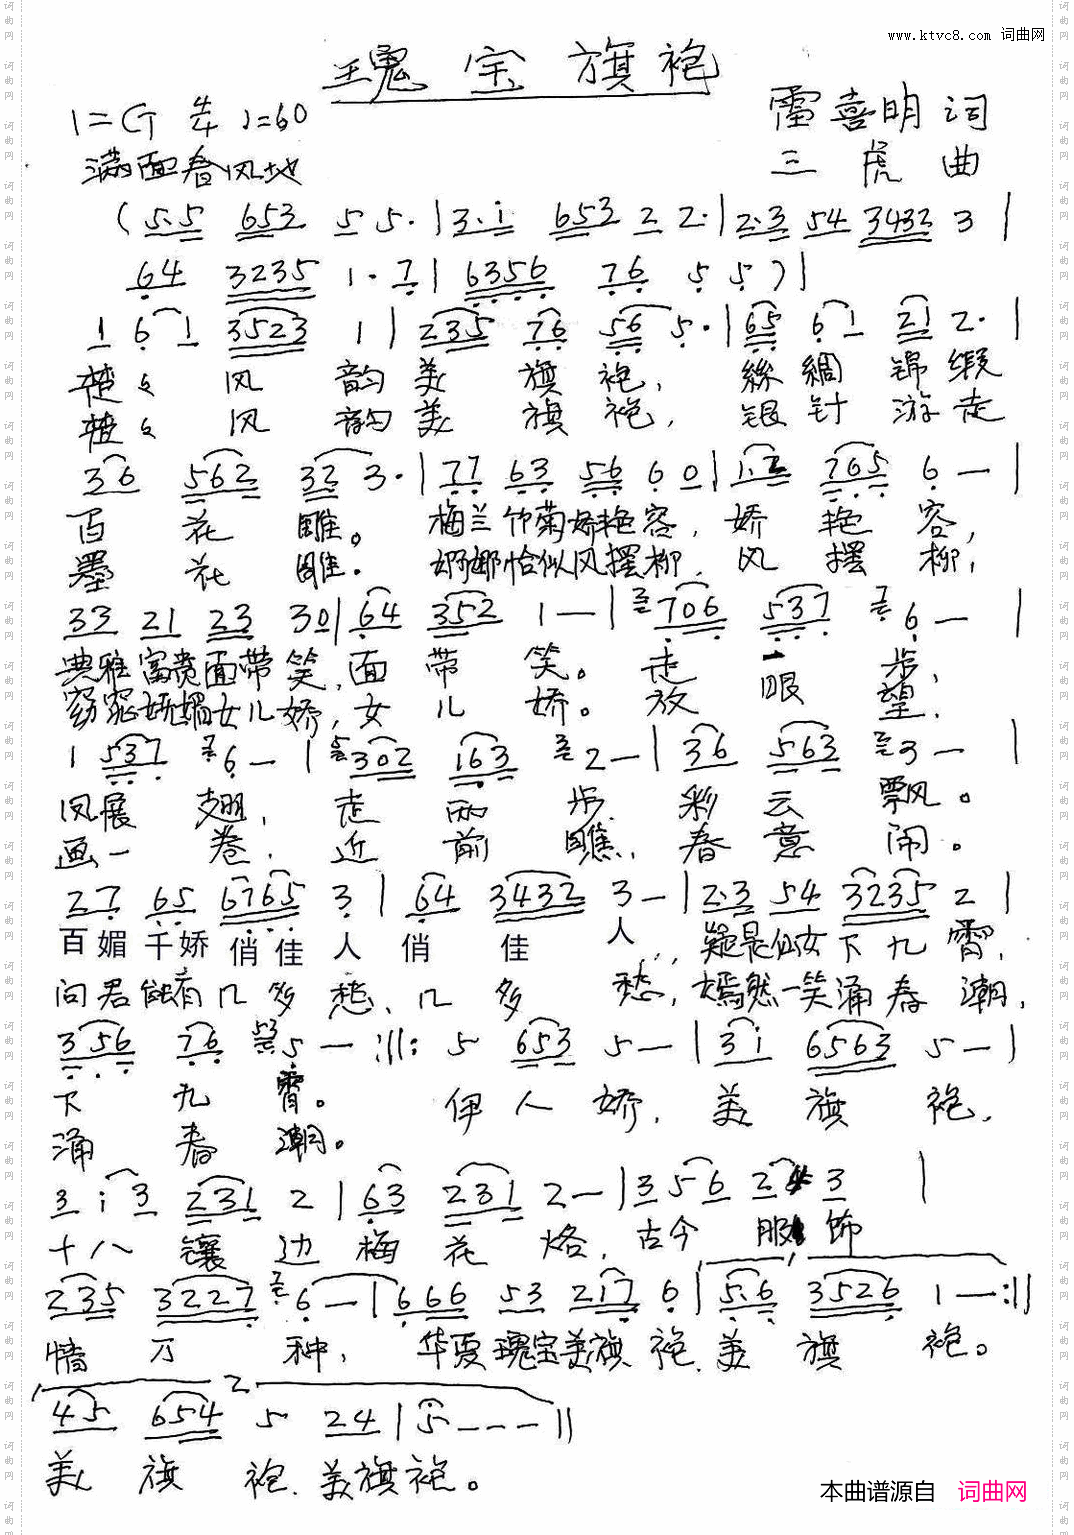 www.ktvc8.com 词曲网
瑰宝旗袍
1=G 4/4 ♩=60
雷喜明 词
满面春风地
三虎 曲
(5·5 653 5 5·|3·i 653 2 2·|2·3 54 3432 3|
64 3235 1·7|6356 76 5 5)|
1 6 1 3523 1|235 76 56 5·|65 61 21 2·|
楚楚风韵美旗袍，丝绸锦缎
楚楚风韵美旗袍，银针游走
36 562 32 3·|77 63 56 60|1·2 765 6—|
百花雕。梅兰竹菊娇艳容，娇艳容，
墨花雕。婀娜恰似风摆柳，风摆柳，
33 21 23 30|64 352 1—|706 537 6—|
典雅富贵面带笑，面带笑。走一步，
窈窕娇媚女儿娇，女儿娇。放眼望，
1 537 6—|302 163 2—|36 563 3—|
凤展翅，走两步，彩云飘。
画一卷，近前瞧，春意闹。
27 65 6765 3|64 3432 3—|2·3 54 3235 2|
百媚千娇俏佳人俏佳人，疑是仙女下九霄，
问君能有几多愁、几多愁，嫣然一笑涌春潮，
356 76 5—:||: 5 653 5—|3i 6563 5—|
下九霄。伊人娇，美旗袍，
涌春潮。
3 i 3 231 2|63 231 2—|3 56 2 3|
十八镶边梅花烙，古今服饰
235 3227 6—|666 53 217 6|5·6 3526 1—:||
情万种，华夏瑰宝美旗袍，美旗袍。
2
45 654 5 24|5———||
美旗袍，美旗袍。
本曲谱源自 词曲网